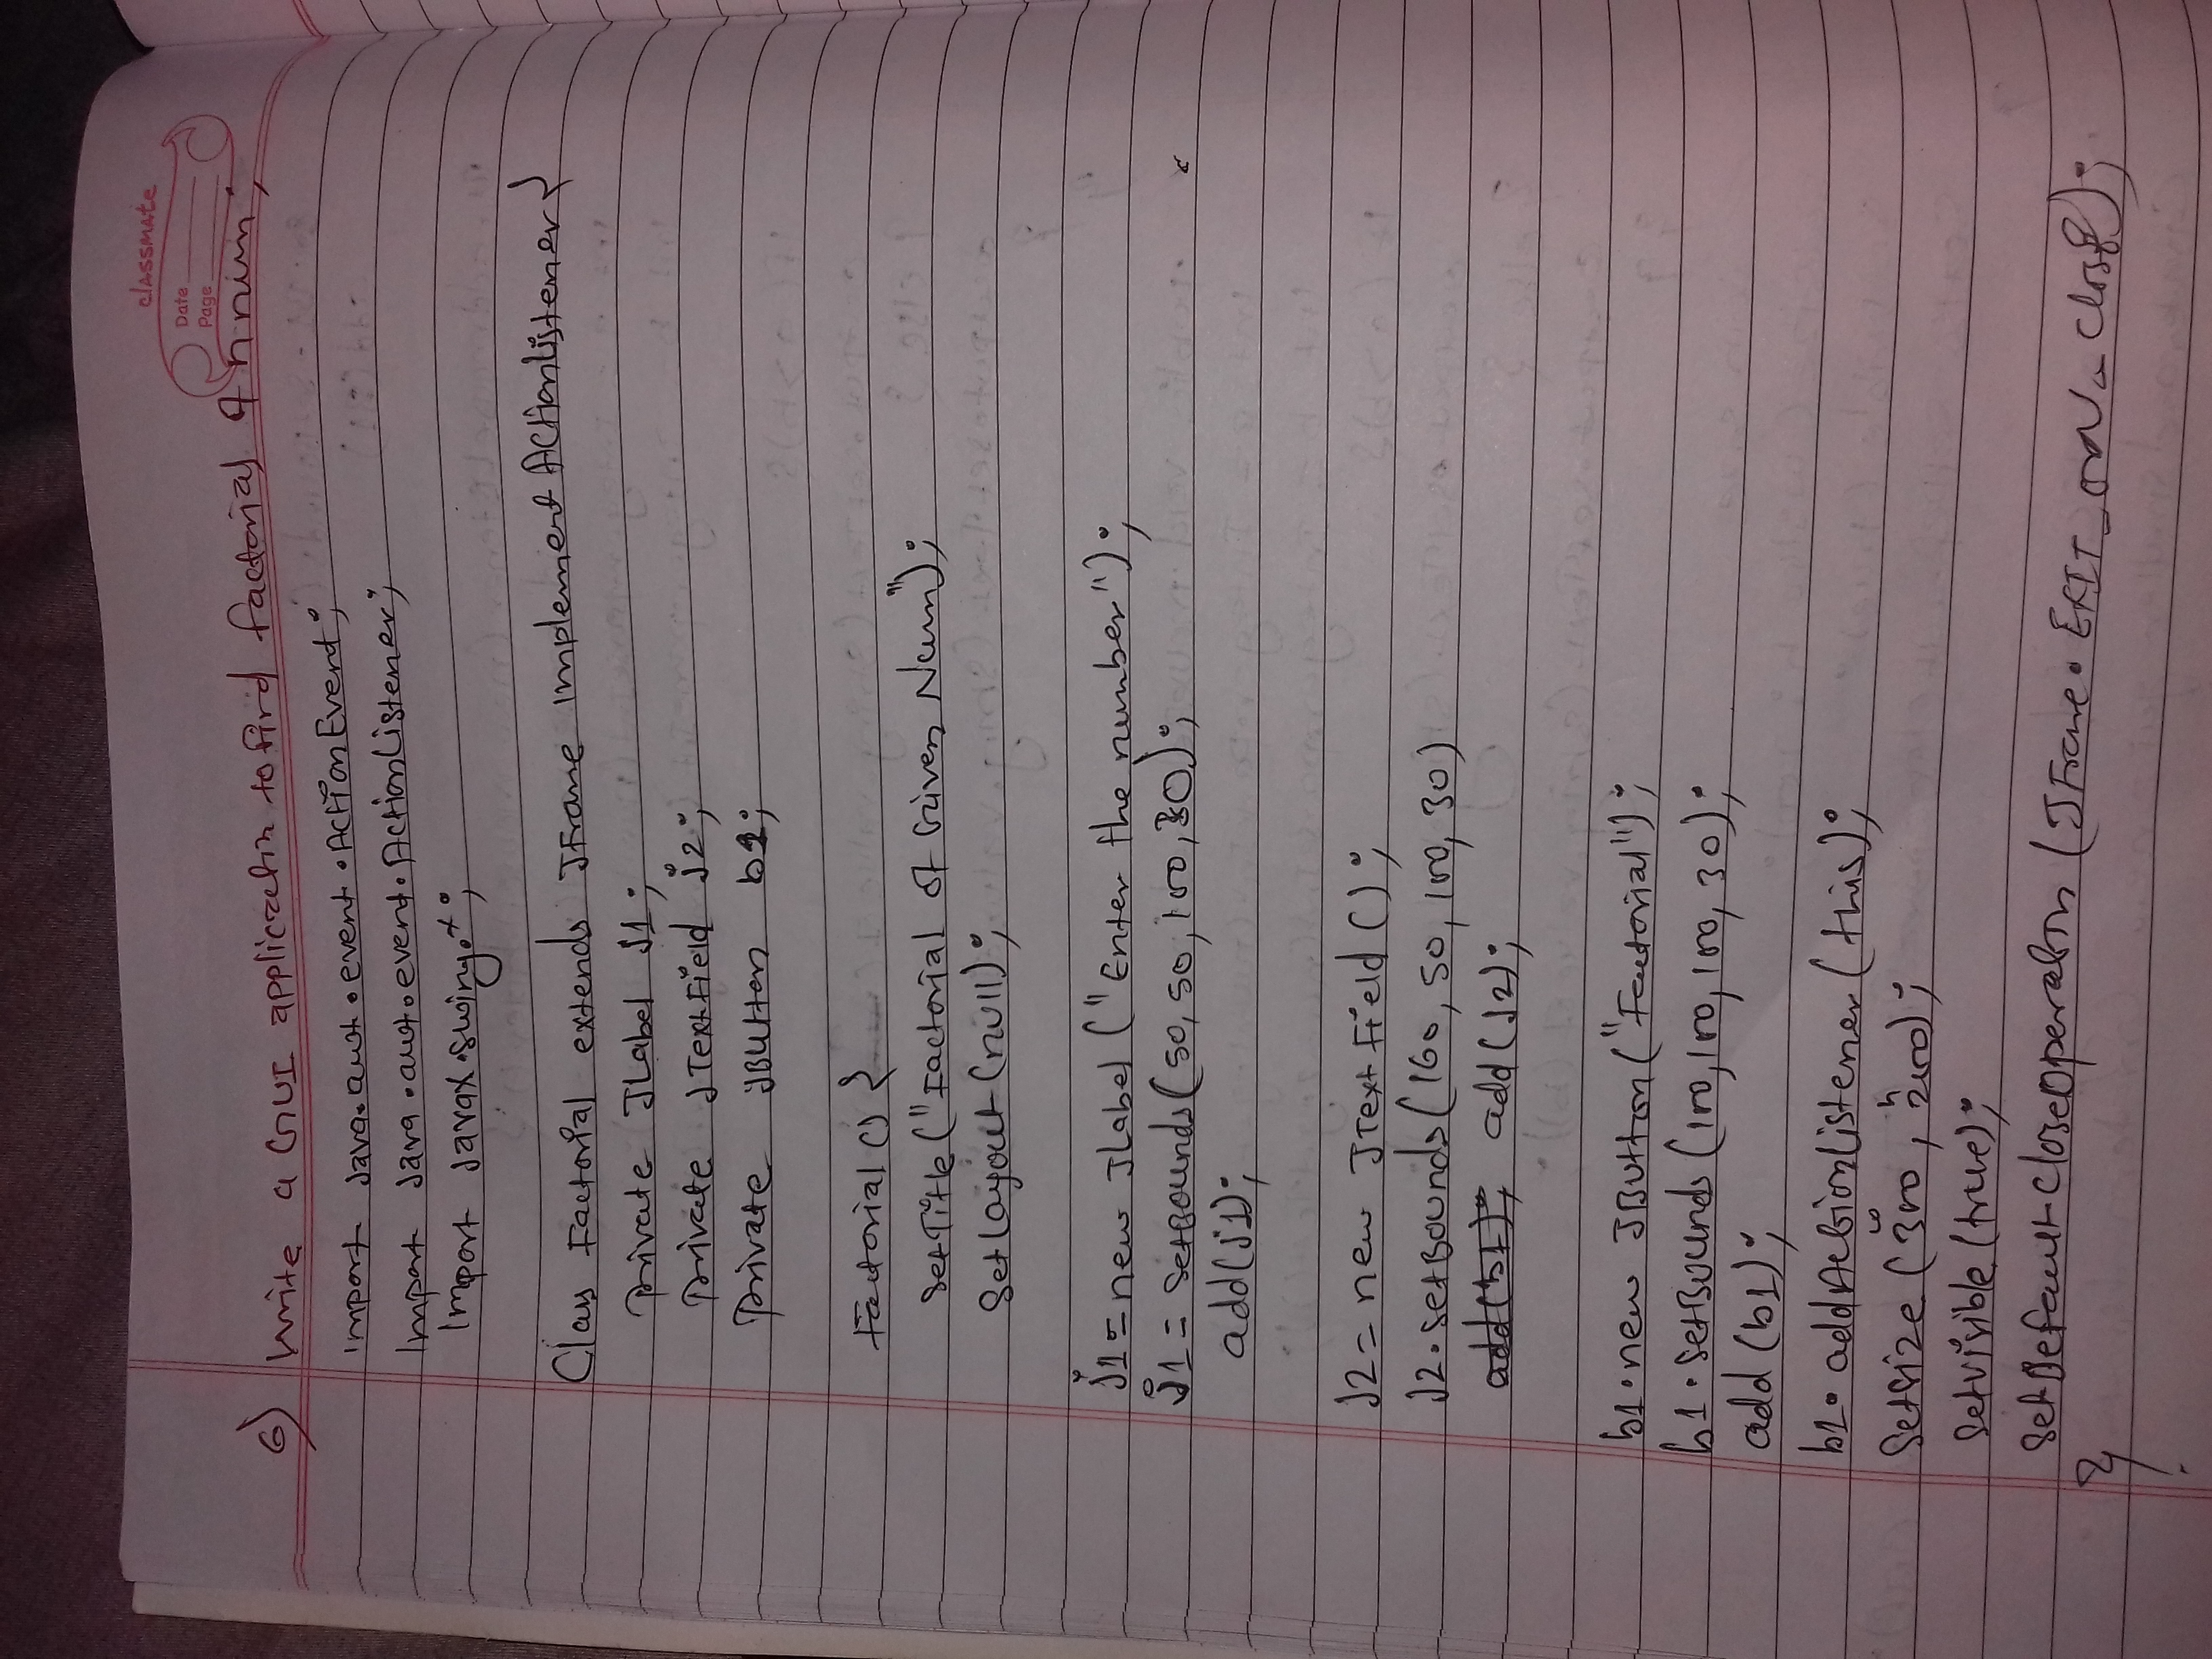 classmate
Date
Page
6) Write a GUI application to find factorial of n num;
import java.awt.event.ActionEvent;
Import java.awt.event.ActionListener;
Import Javax.swing.*;
Class Factorial extends JFrame implement ActionListener{
private JLabel j1;
private JTextField j2;
private JButton b1;
Factorial () {
SetTitle ("Factorial of Given Num");
SetLayout (null);
j1 = new JLabel ("Enter the number");
j1 = SetBounds (50, 50, 100, 30);
add(j1);
J2 = new JTextField ();
J2.setBounds (160, 50, 100, 30)
add(b1); add(J2);
b1.new JButton ("Factorial");
b1.SetBounds (100, 100, 100, 30);
add (b1);
b1.addActionListener (this);
w h
SetSize (300, 200);
SetVisible (true);
SetDefaultCloseOperation (JFrame.EXIT_ON_Close);
}